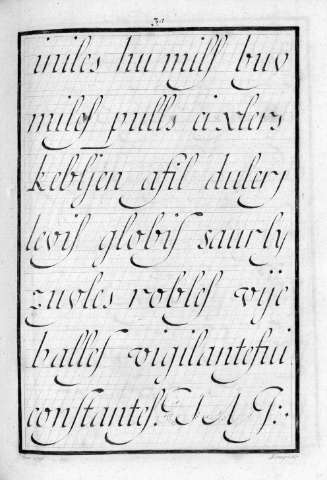 iniles hu milſ buv
mileſ pulls cixlers
kebljen afil dulerj
leviſ globiſ saurly
zuvles robleſ vije
balleſ vigilantefui
constantes. T A G: